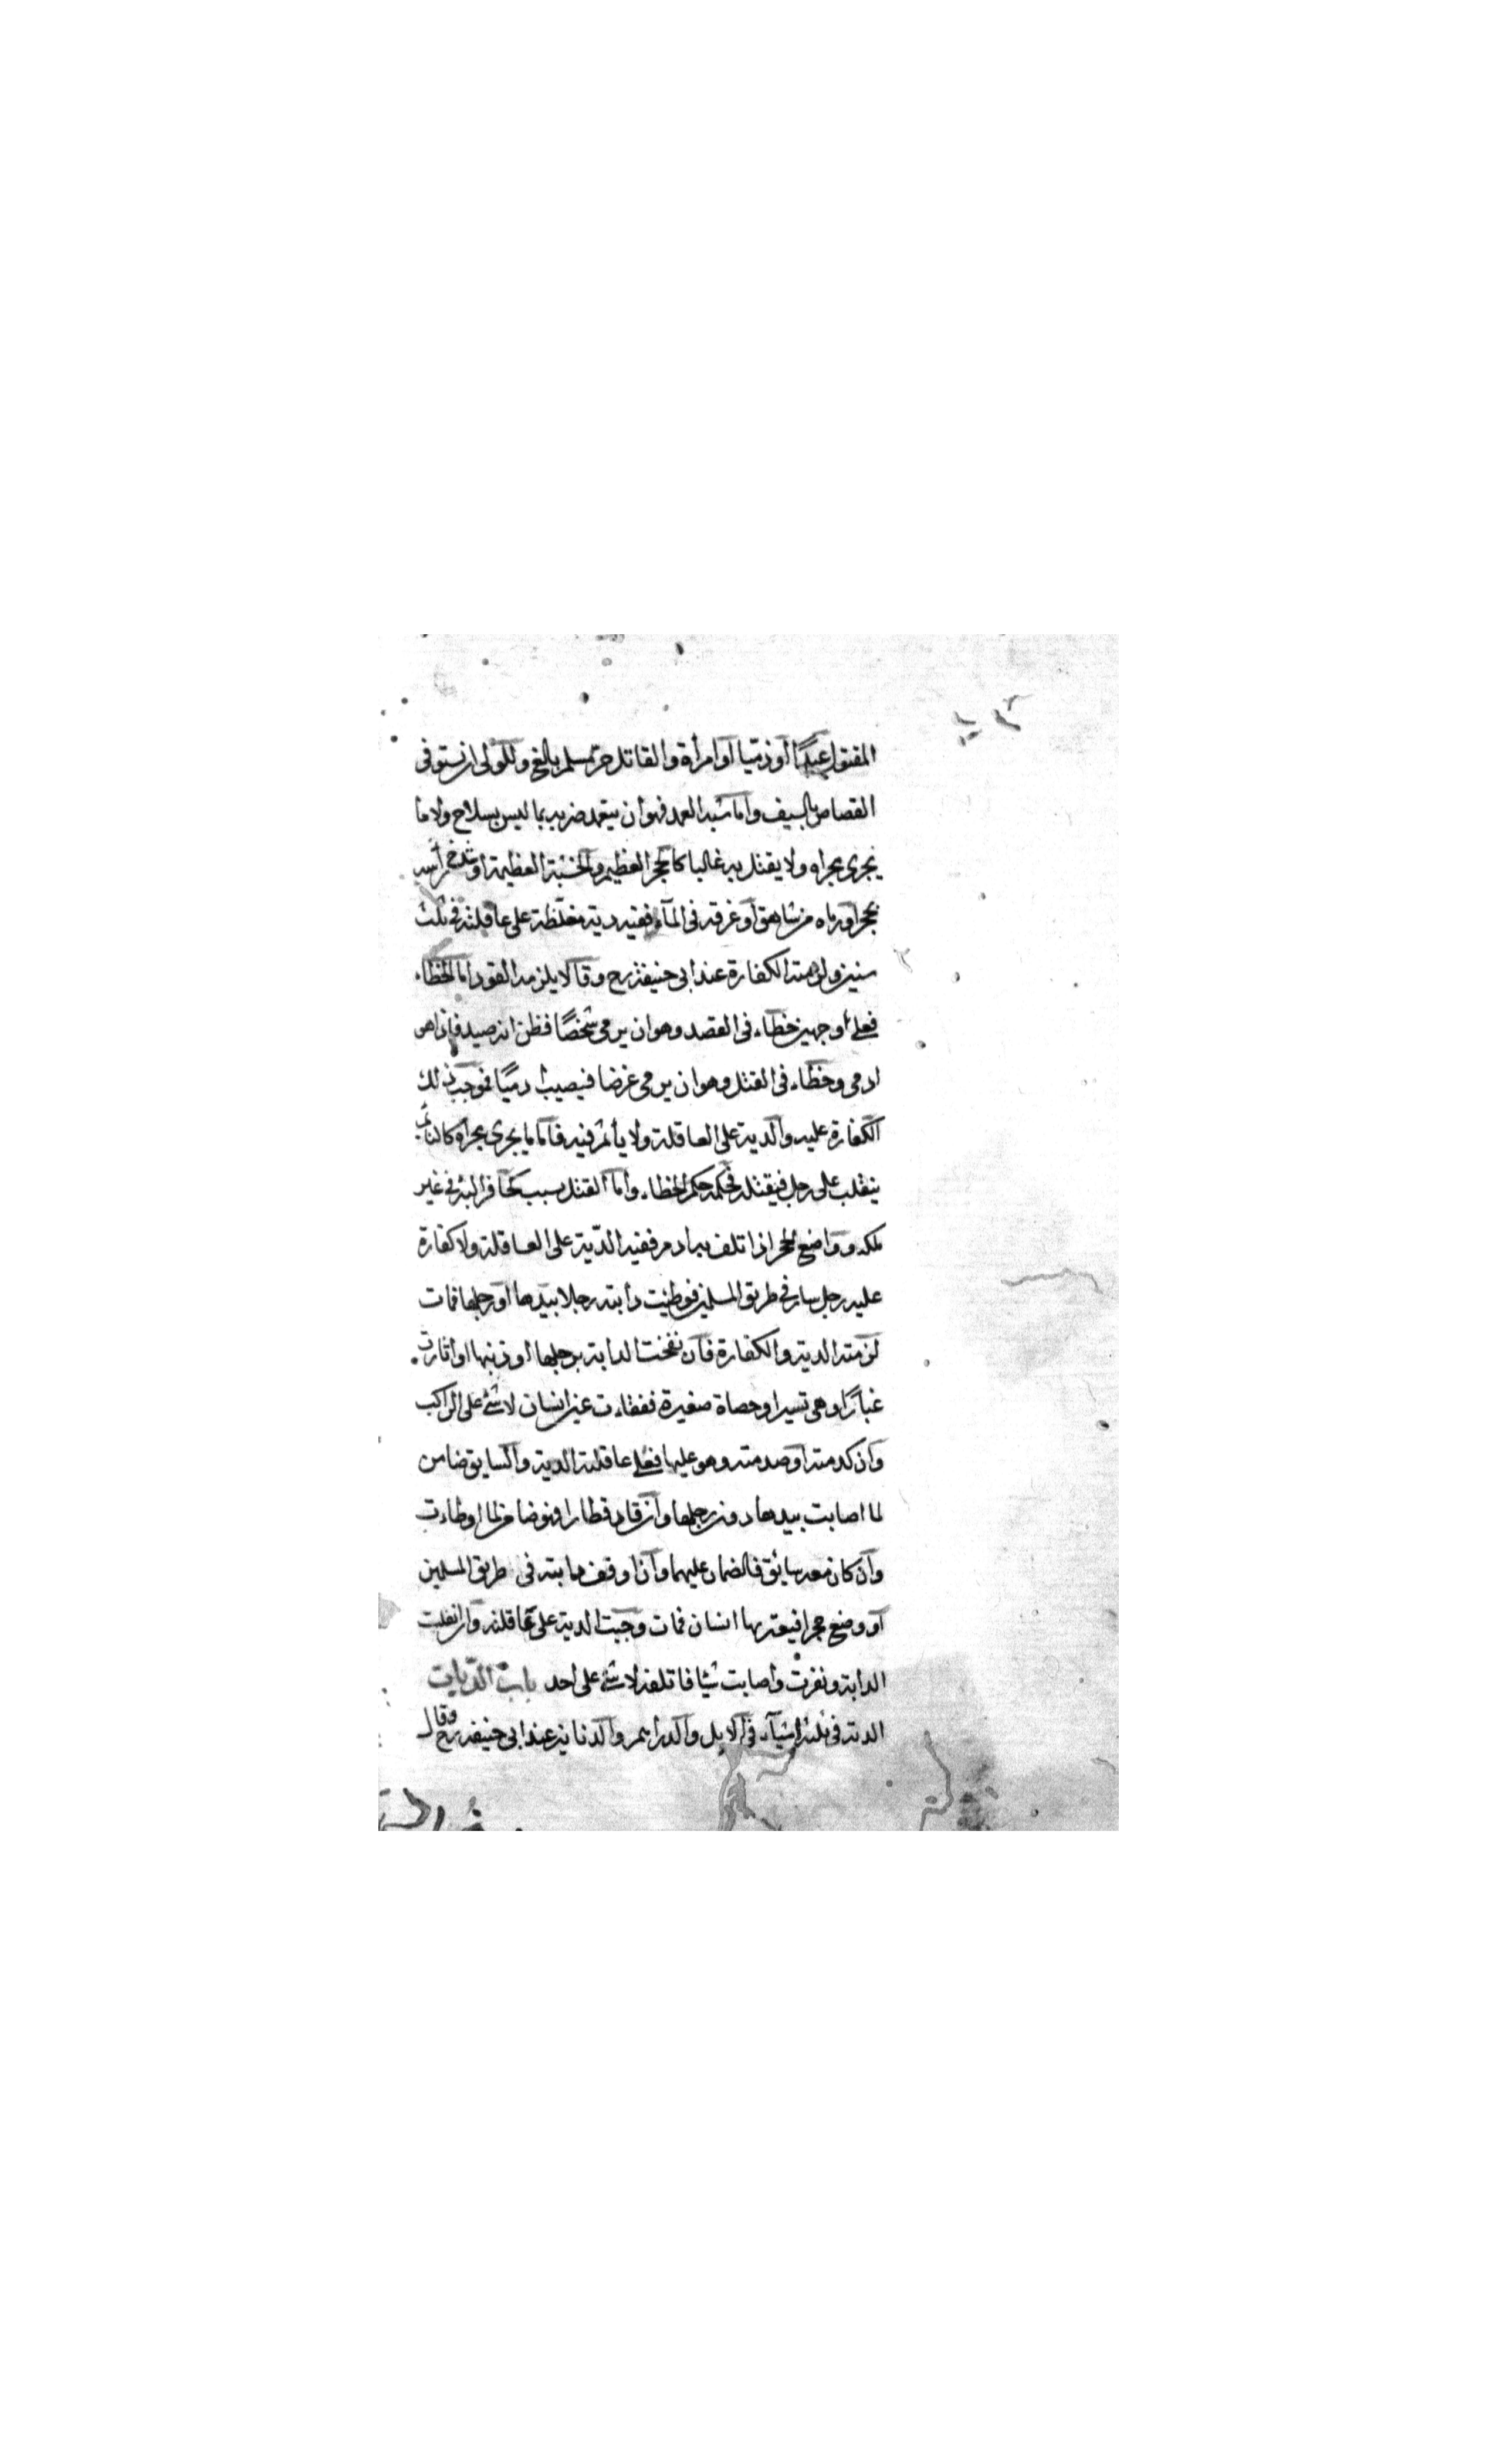 المقتول عبدًا أو ذميا او امرأة والقاتل حر مسلم بالغ وللولى ان يستوفى
القصاص بالسيف واما شبه العمد فهو ان يتعمد ضربه بما ليس بسلاح ولا ما
يجرى مجراه ولا يقتل به غالبا كالحجر العظيم والخشبة العظيمة او شدخ رأسه
بحجر او رماه من شاهق او غرقه فى المآء ففيه دية مغلّظة على عاقلته فى ثلث
سنين ولزمته الكفارة عند ابى حنيفة رح وقالا يلزمه القود اما الخطاء
فعلى أوجهين خطاء فى القصد وهو ان يرمى شخصًا فظن انه صيد فاذا هو
ادمى وخطاء فى القتل وهو ان يرمى غرضا فيصيب ادميًا فموجب ذلك
الكفارة عليه والدية على العاقلة ولا يأثم فيه فاما ما يجرى مجراه كالنائم
ينقلب على رجل فيقتله فحكمه حكم الخطاء واما القتل بسبب كحافر البئر فى غير
ملكه وواضع الحجر اذا تلف به ادمى ففيه الدّية على العاقلة ولا كفارة
عليه رجل سار فى طريق المسلمين فوطئت دابته رجلا بيدها او رجلها فمات
لزمته الدية والكفارة فان نفحت الدابة برجلها او ذنبها او اثارت
غبارًا وهى تسير او حصاة صغيرة ففقاءت عين انسان لا شئ على الراكب
وان كدمته او صدمته وهو عليها فعلى عاقلته الدية والسايق ضامن
لما اصابت بيدها دون رجلها وان قاد قطارا فهو ضامن لما اوطاءت
وان كان معه سائق فالضمان عليهما وان اوقف دابته فى طريق المسلمين
او وضع حجرا فيعثر بها انسان فمات وجبت الدية على عاقلته وان انفلتت
الدابة ونفرت واصابت شيئا فاتلفته لا شئ على احد باب الدّيات
الدية فى ثلثة اشيآء فى الابل والدراهم والدنانير عند ابى حنيفة رح وقال